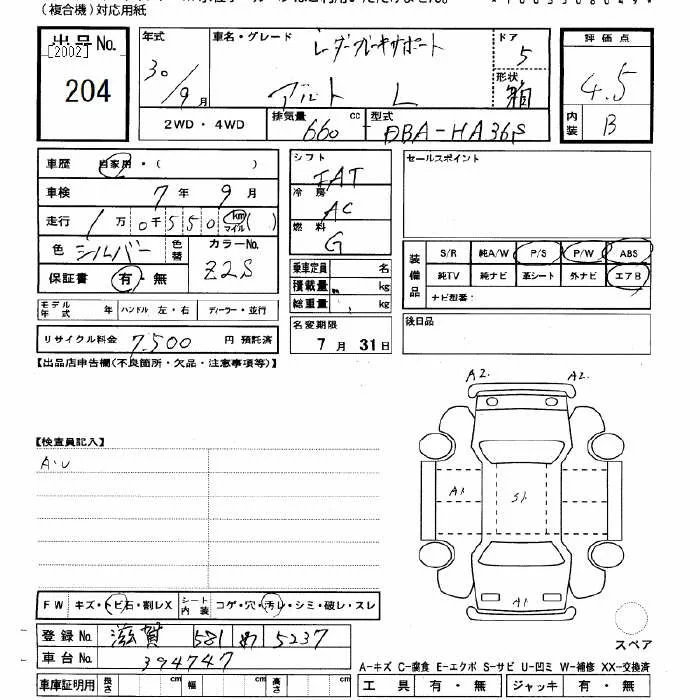 (複合機)対応用紙
出品No.
[2002]
204
年式 30/9月
車名・グレード レーダーブレーキサポート
アルト L
ドア 5
形状 箱
評価点
4.5
内装 B
2WD・4WD
排気量 660 cc
型式 DBA-HA36S
車歴 自家用・( )
車検 7年 9月
走行 1万0千550 km マイル ( )
色 シルバー 色替
カラーNo. Z2S
保証書 有・無
モデル年式 年 ハンドル 左・右 ディーラー・並行
リサイクル料金 7,500 円 預託済
シフト
冷房 AC
燃料 G
乗車定員 名
積載量 kg
総重量 kg
名変期限
7月 31日
セールスポイント
装備品
S/R 純A/W P/S P/W ABS
純TV 純ナビ 革シート 外ナビ エアB
ナビ型番:
後日品
【出品店申告欄(不良箇所・欠品・注意事項等)】
【検査員記入】
A・U
A2. A2.
A1 S1
A1
FW キズ・トビ石・割レX シート内装 コゲ・穴・汚レ・シミ・破レ・スレ
登録No. 滋賀 581 5237
車台No. 394747
車庫証明用 長さ cm 幅 cm 高さ cm
スペア
A-キズ C-腐食 E-エクボ S-サビ U-凹ミ W-補修 XX-交換済
工具 有・無 ジャッキ 有・無